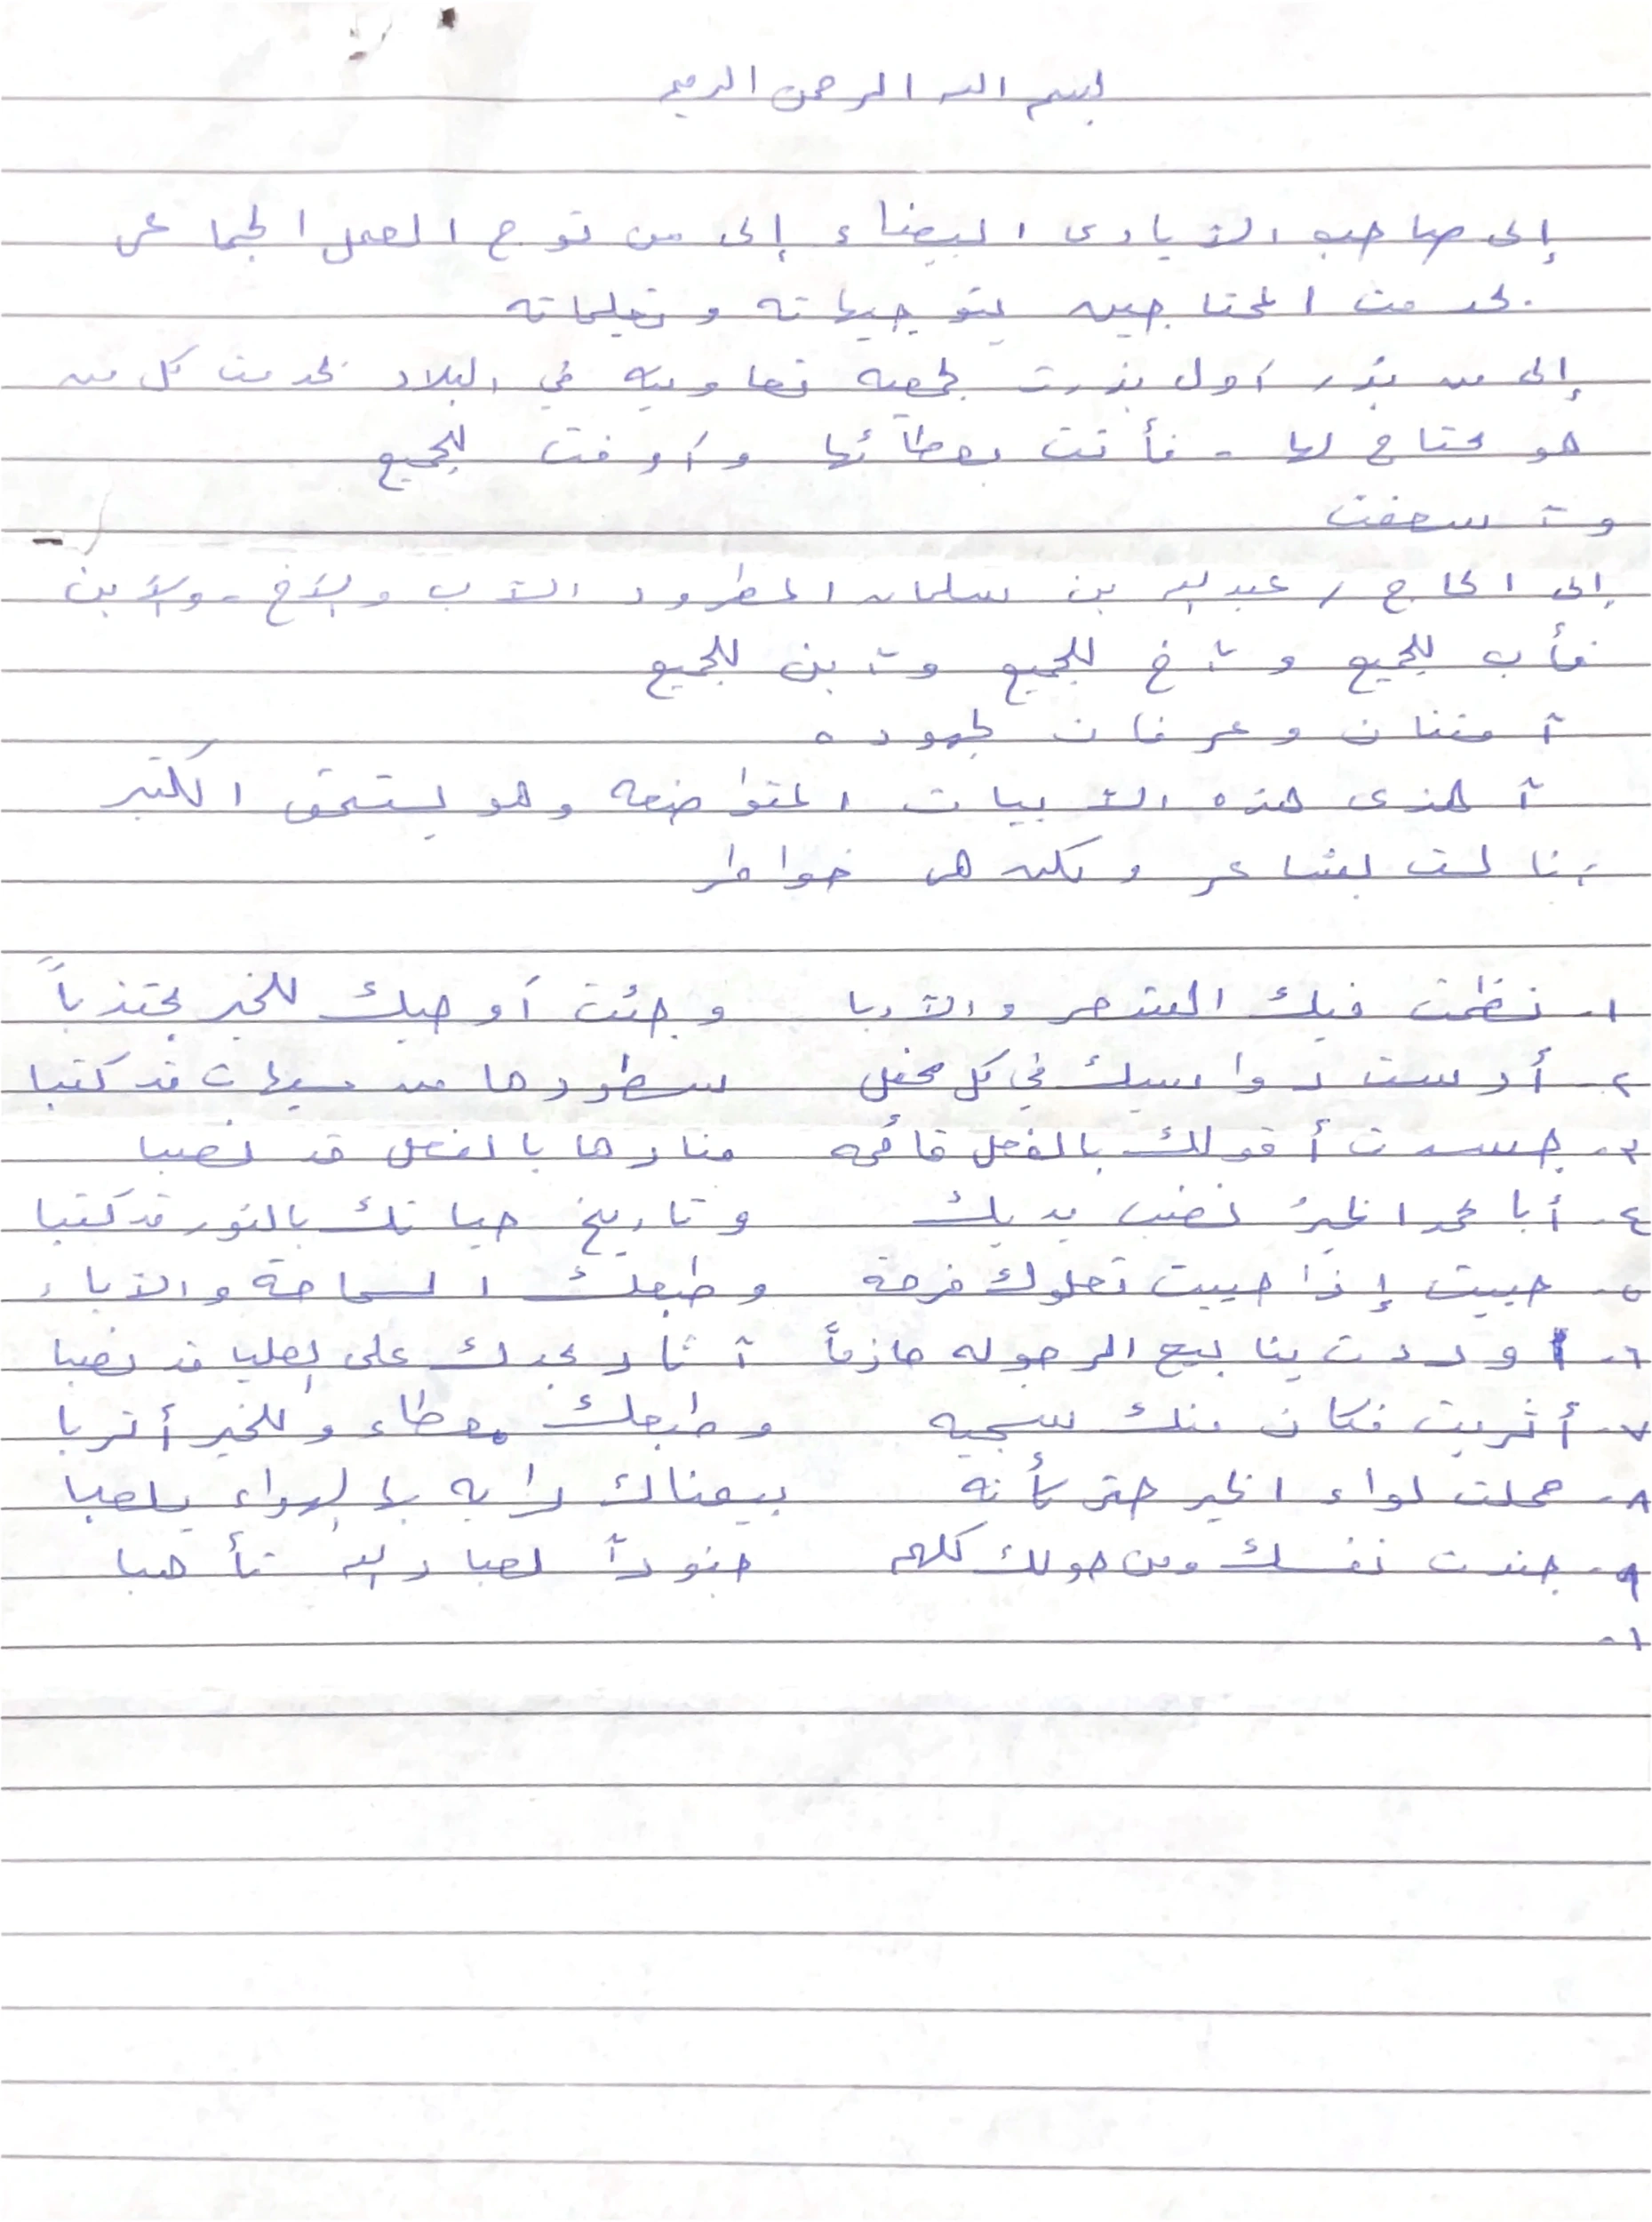 بسم الله الرحمن الرحيم
إلى صاحب الآيادى البيضاء إلى من توج العمل الجماعى
بخدمت المحتاجين بتوجيهاته وتعليماته
إلى من بذر أول بذرت لجمعيه تعاونيه في البلاد بخدمت كل من
هو محتاج لها - فأتت بعطائها وأوفت للجميع
وآسعفت
إلى الحاج / عبدالله بن سلمان المطرود الآب والآخ - والآبن
فأب للجميع وآخ للجميع وآبن للجميع
آمتنان وعرفان لجهوده
آهدى هذه الآبيات المتواضعه وهو يستحق الكثير
أنا لست بشاعر ولكن هى خواطر
١- نظمت فيك الشعر والآدبا وجئت أوصيك للخير مجتذباً
٢- أرست رواسيك في كل محفل سطورها من سيهات قد كتبا
٣- جسدت أقولك بالفعل قائمه منارها بالفعل قد نصبا
٤- أبا محمد الخيرُ نصب يديك وتاريخ حياتك بالنور قد كتبا
٥- حييت إذا حييت تعلوك فرحة وطبعك السماحة والآباء
٦- وردت ينابيع الرجوله حازماً آثار مجدك على العليا قد نصبا
٧- أثريت فكان منك سجيه وطبعك معطاء وللخير أقربا
٨- حملت لواء الخير حتى كأنه بيمناك رايه بالهواء يلعبا
٩- جندت نفسك ومن حولك كلهم جنوداً لعباد الله تأهبا
١٠-